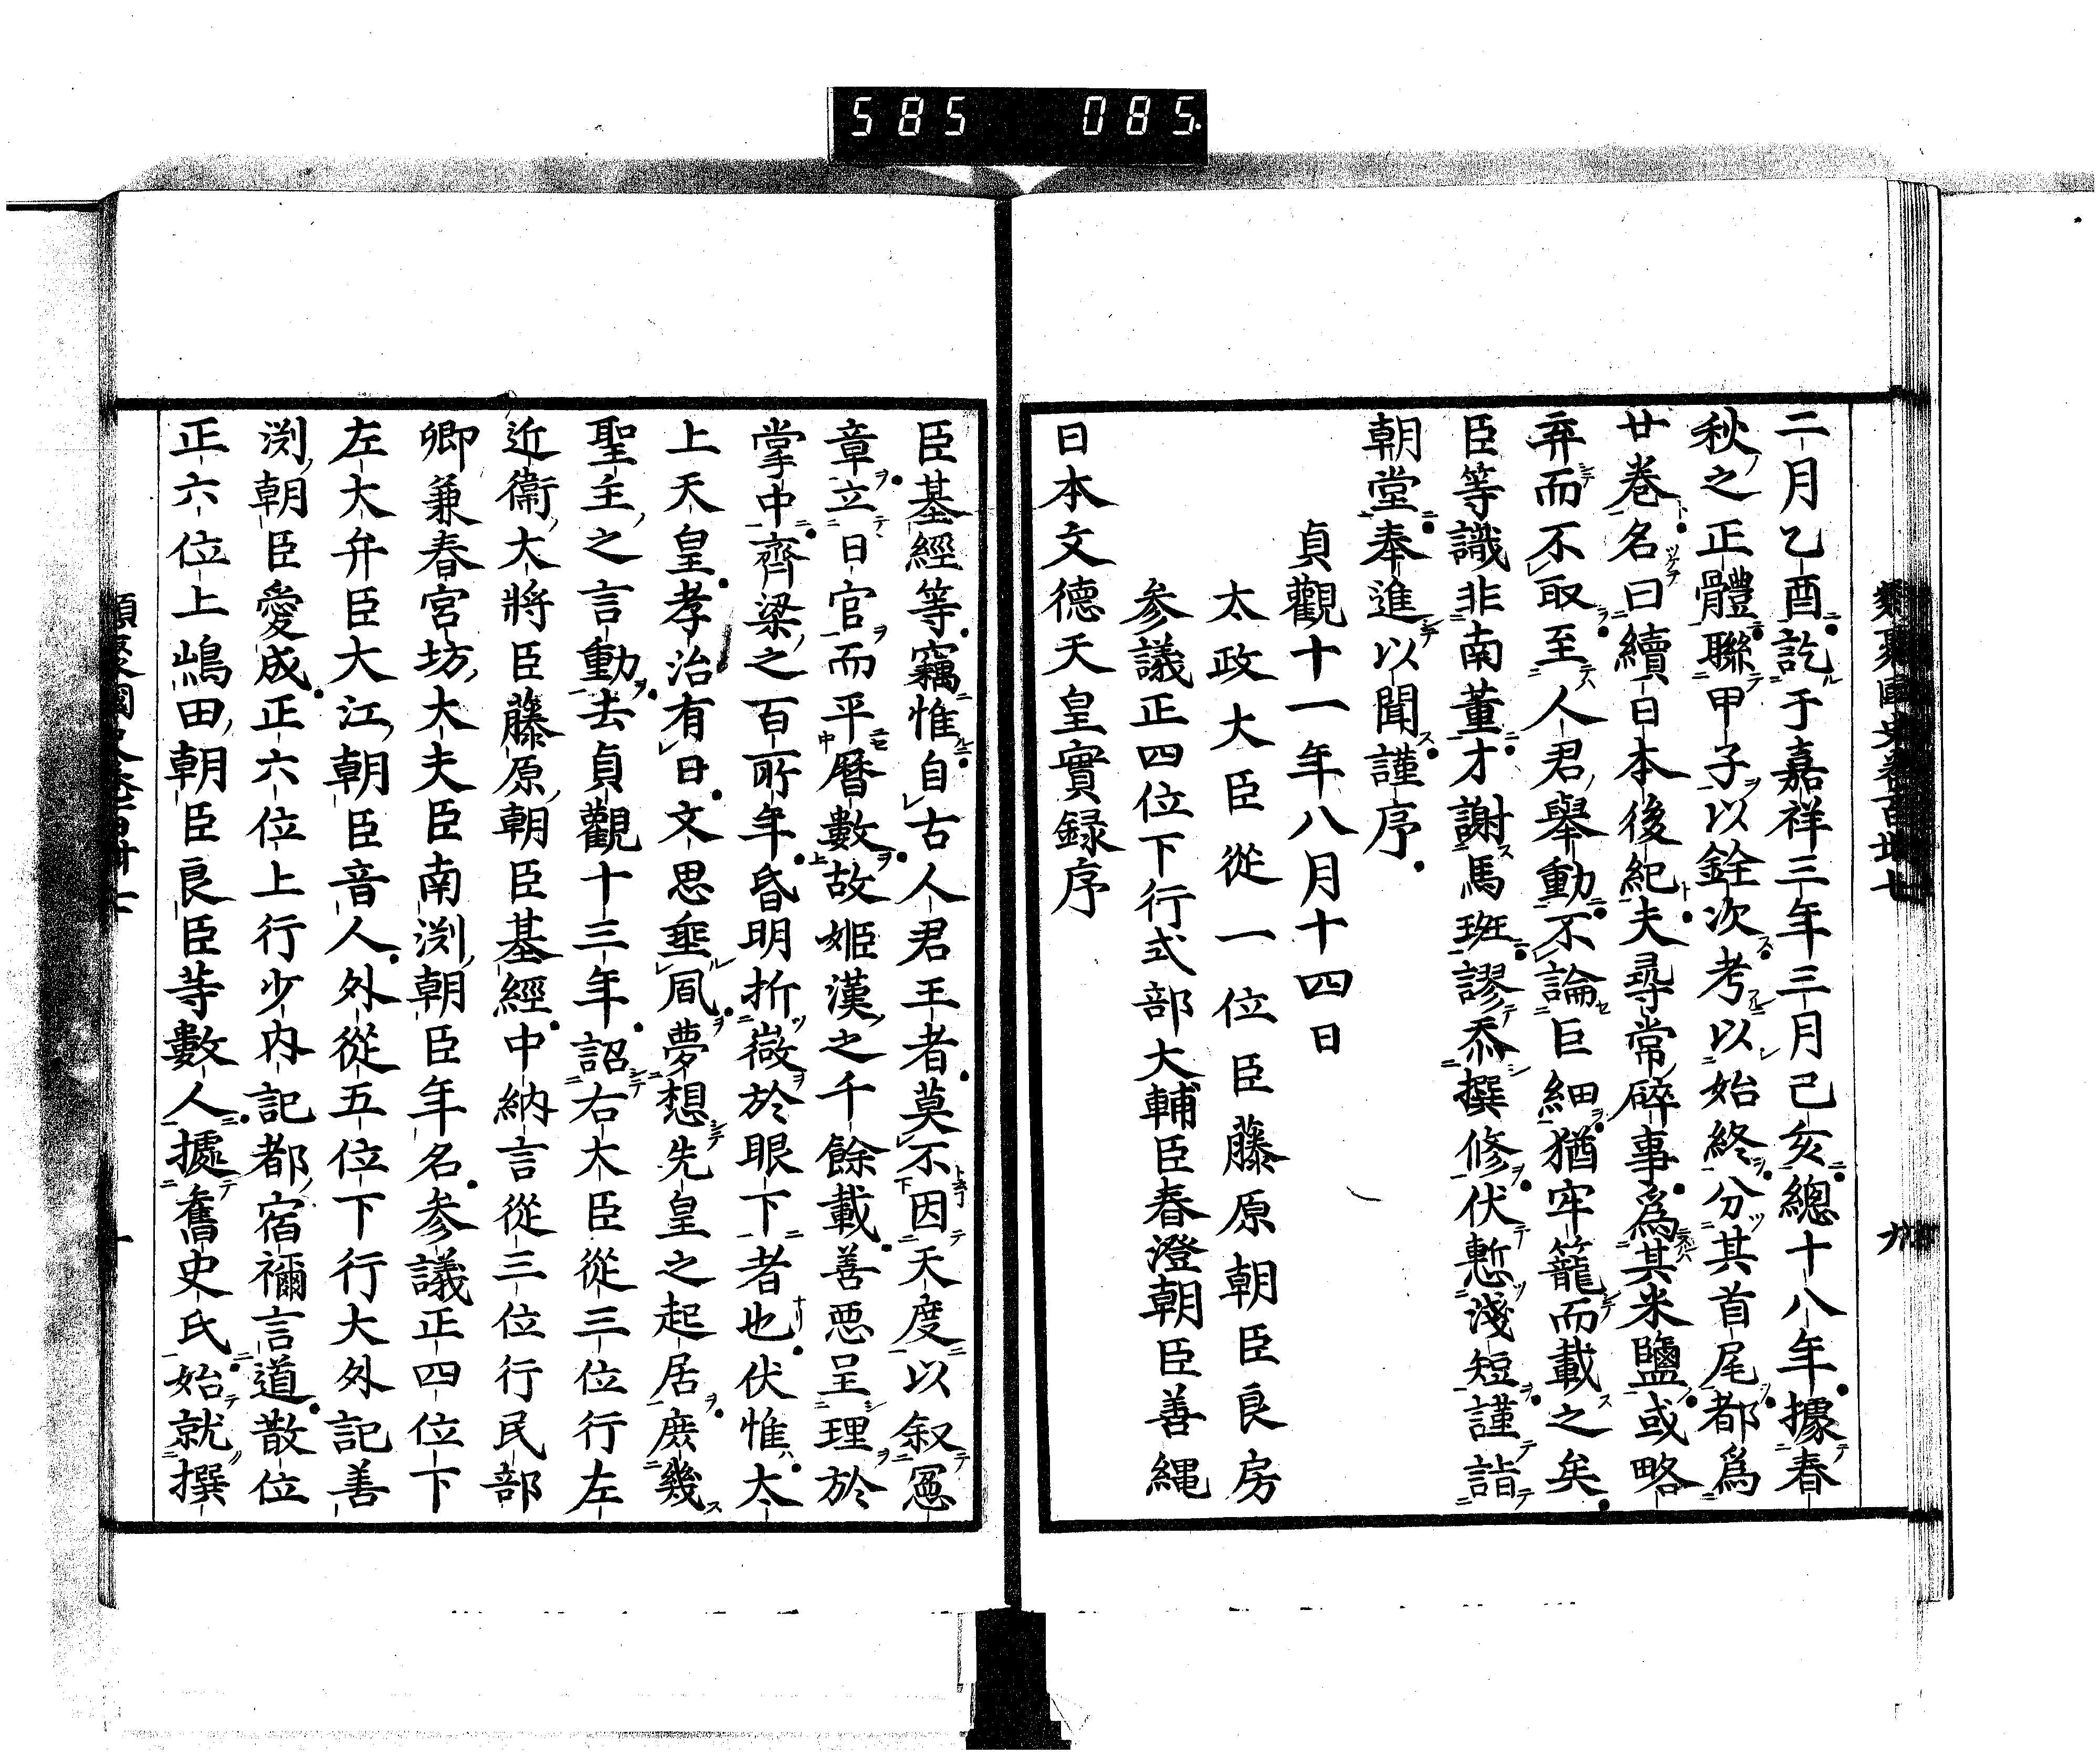 585 085
類聚國史卷百卌七 九
二月乙酉訖于嘉祥三年三月己亥總十八年據春
秋之正體聯甲子以銓次考以始終分其首尾都爲
廿卷名曰續日本後紀夫尋常碎事爲其米鹽或略
弃而不取至人君舉動不論巨細猶牢籠而載之矣
臣等識非南董才謝馬班謬忝撰修伏慙淺短謹詣
朝堂奉進以聞謹序
貞觀十一年八月十四日
太政大臣從一位臣藤原朝臣良房
參議正四位下行式部大輔臣春澄朝臣善繩
日本文德天皇實録序
臣基經等竊惟自古人君王者莫不因天度以叙寃
章立日官而平曆數故姬漢之千餘載善惡呈理於
掌中齊梁之百所年昏明折微於眼下者也伏惟太
上天皇孝治有日文思垂風夢想先皇之起居庶幾
聖主之言動去貞觀十三年詔右大臣從三位行左
近衞大將臣藤原朝臣基經中納言從三位行民部
卿兼春宮坊大夫臣南渕朝臣年名參議正四位下
左大弁臣大江朝臣音人外從五位下行大外記善
渕朝臣愛成正六位上行少内記都宿禰言道散位
正六位上嶋田朝臣良臣等數人據舊史氏始就撰